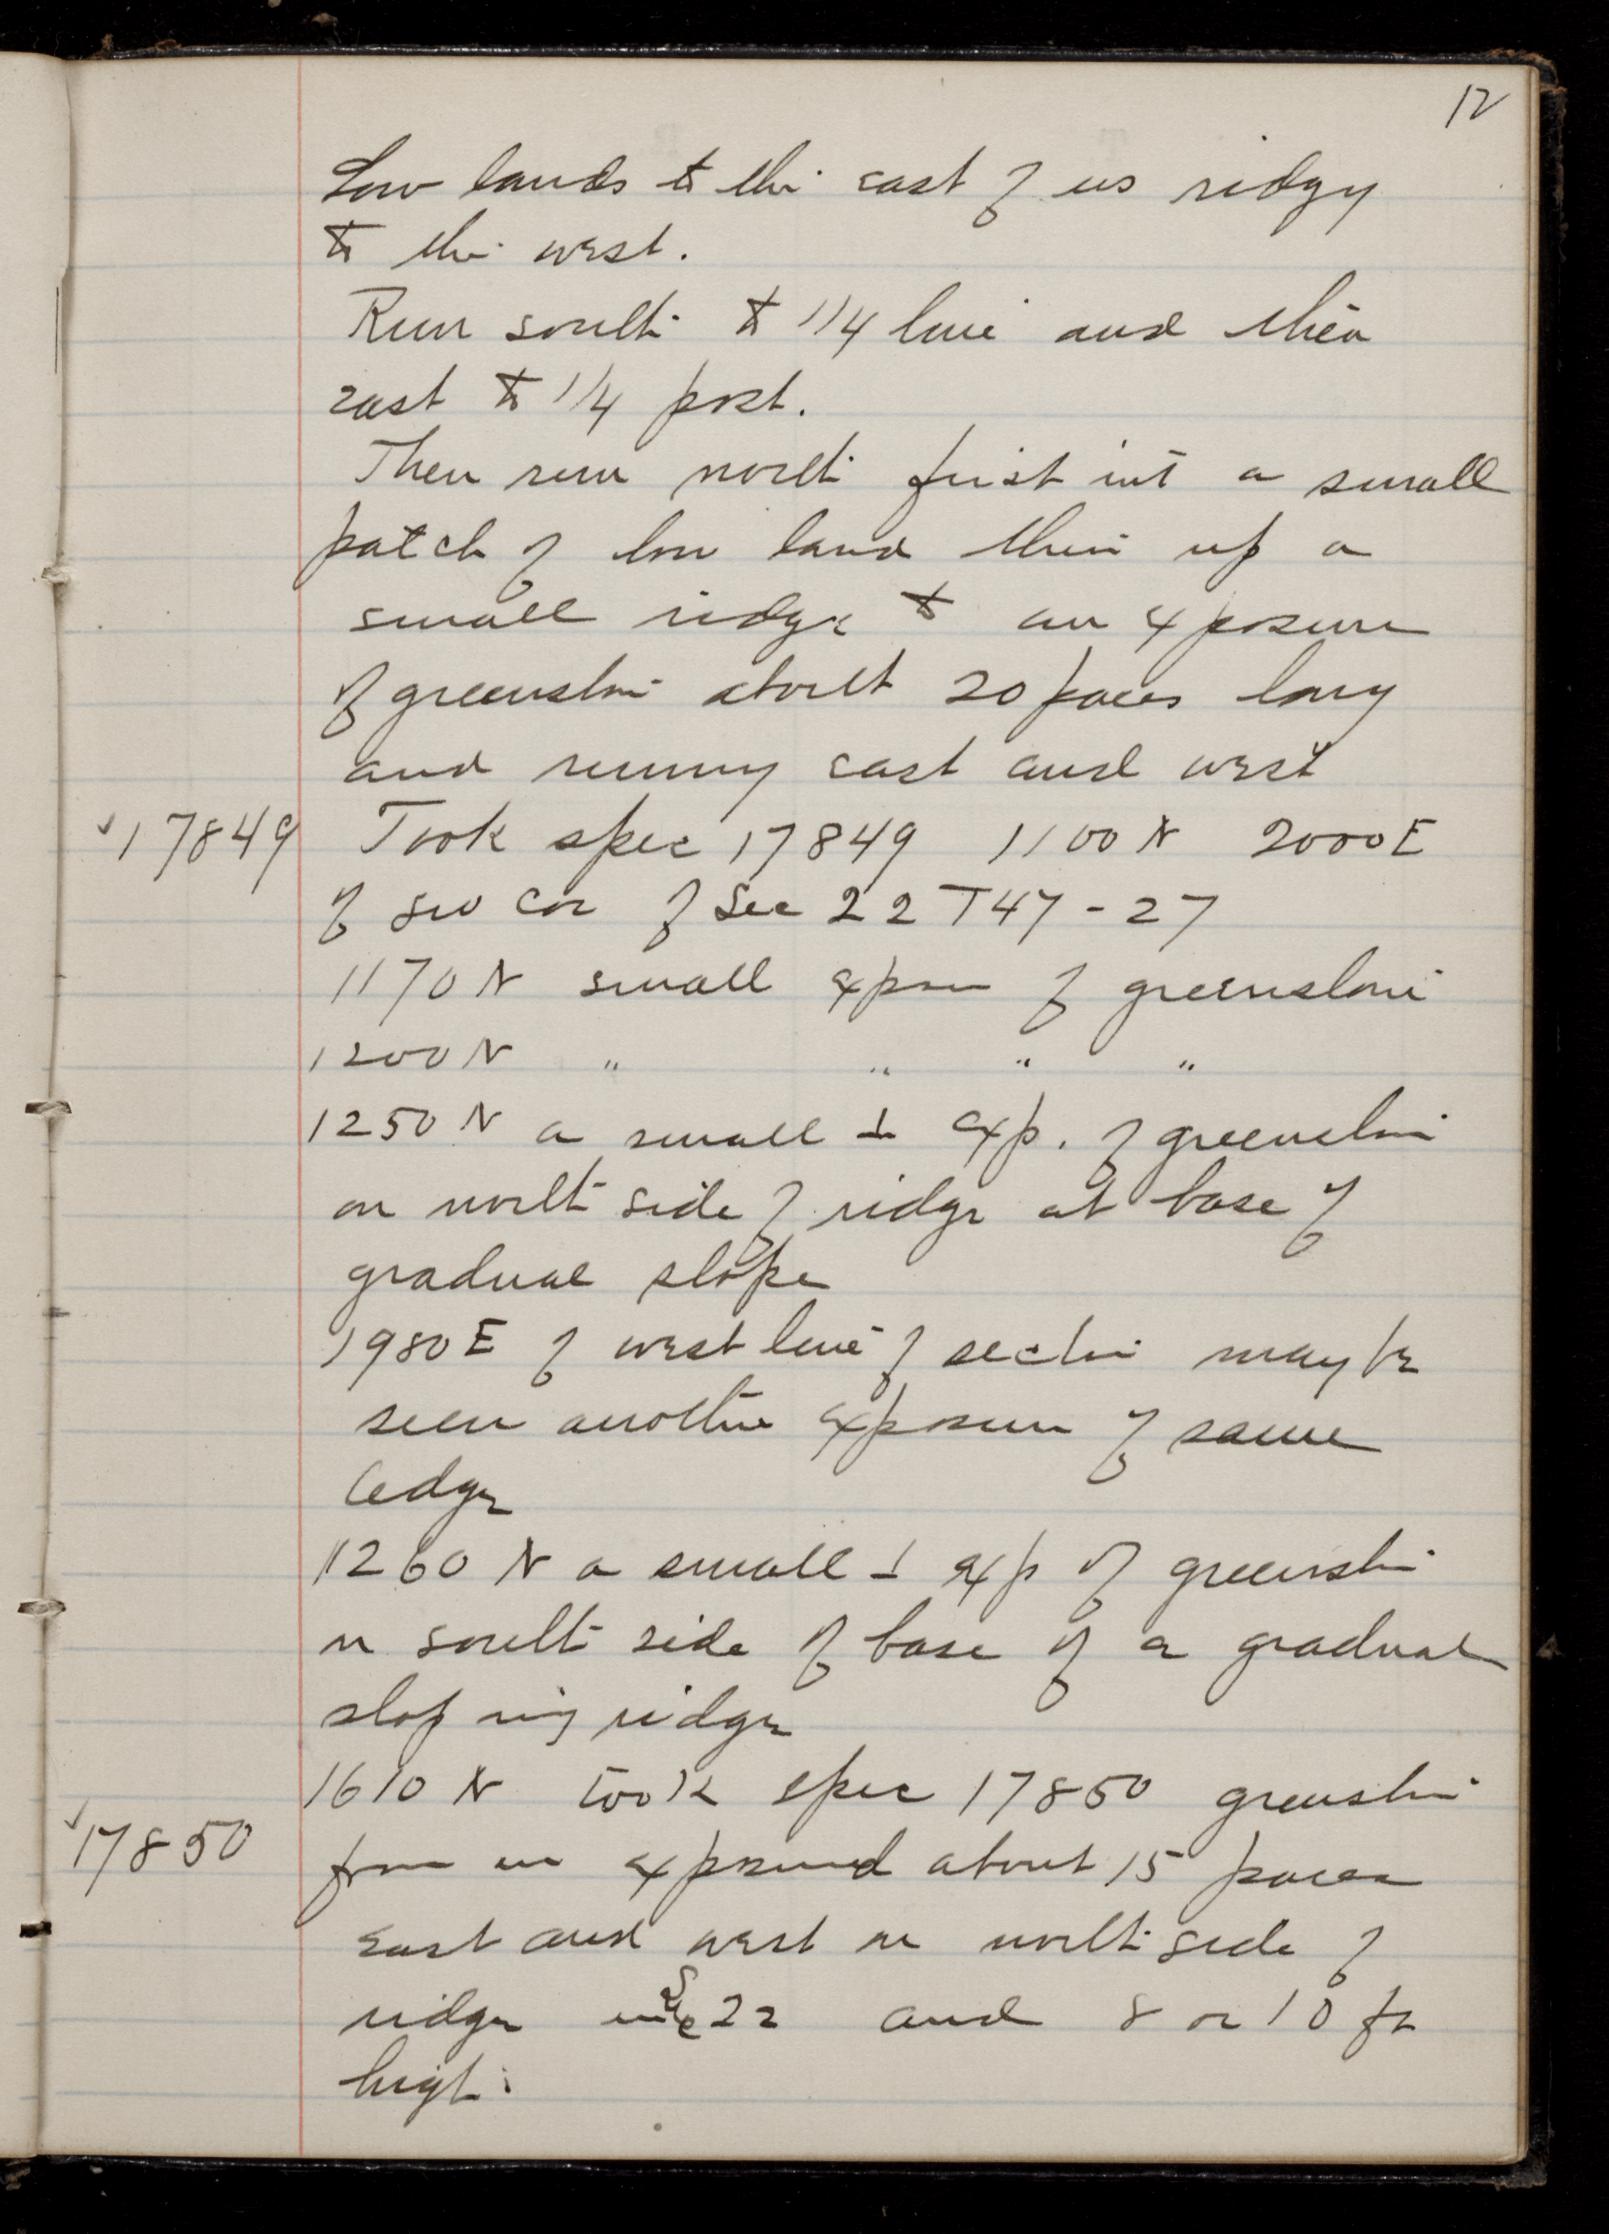 12
Low lands to the east of us ridgy
to the west.
Run south to 1/4 line and then
east to 1/4 post.
Then run north first into a small
patch of low land then up a
small ridge to an exposure
of greenstone about 20 paces long
and running east and west
✓17849 Took spec 17849 1100 N 2000 E
of sw cor of Sec 22 T47-27
1170 N small exposure of greenstone
1200 N " " " "
1250 N a small ⊥ exp. of greenstone
on north side of ridge at base of
gradual slope
1980 E of west line of section may be
seen another exposure of same
ledge
1260 N a small ⊥ exp of greenstone
on south side of base of a gradual
sloping ridge
1610 N took spec 17850 greenstone
✓17850 from an exposure about 15 paces
east and west on north side of
ridge in Sec 22 and 8 or 10 ft
high.